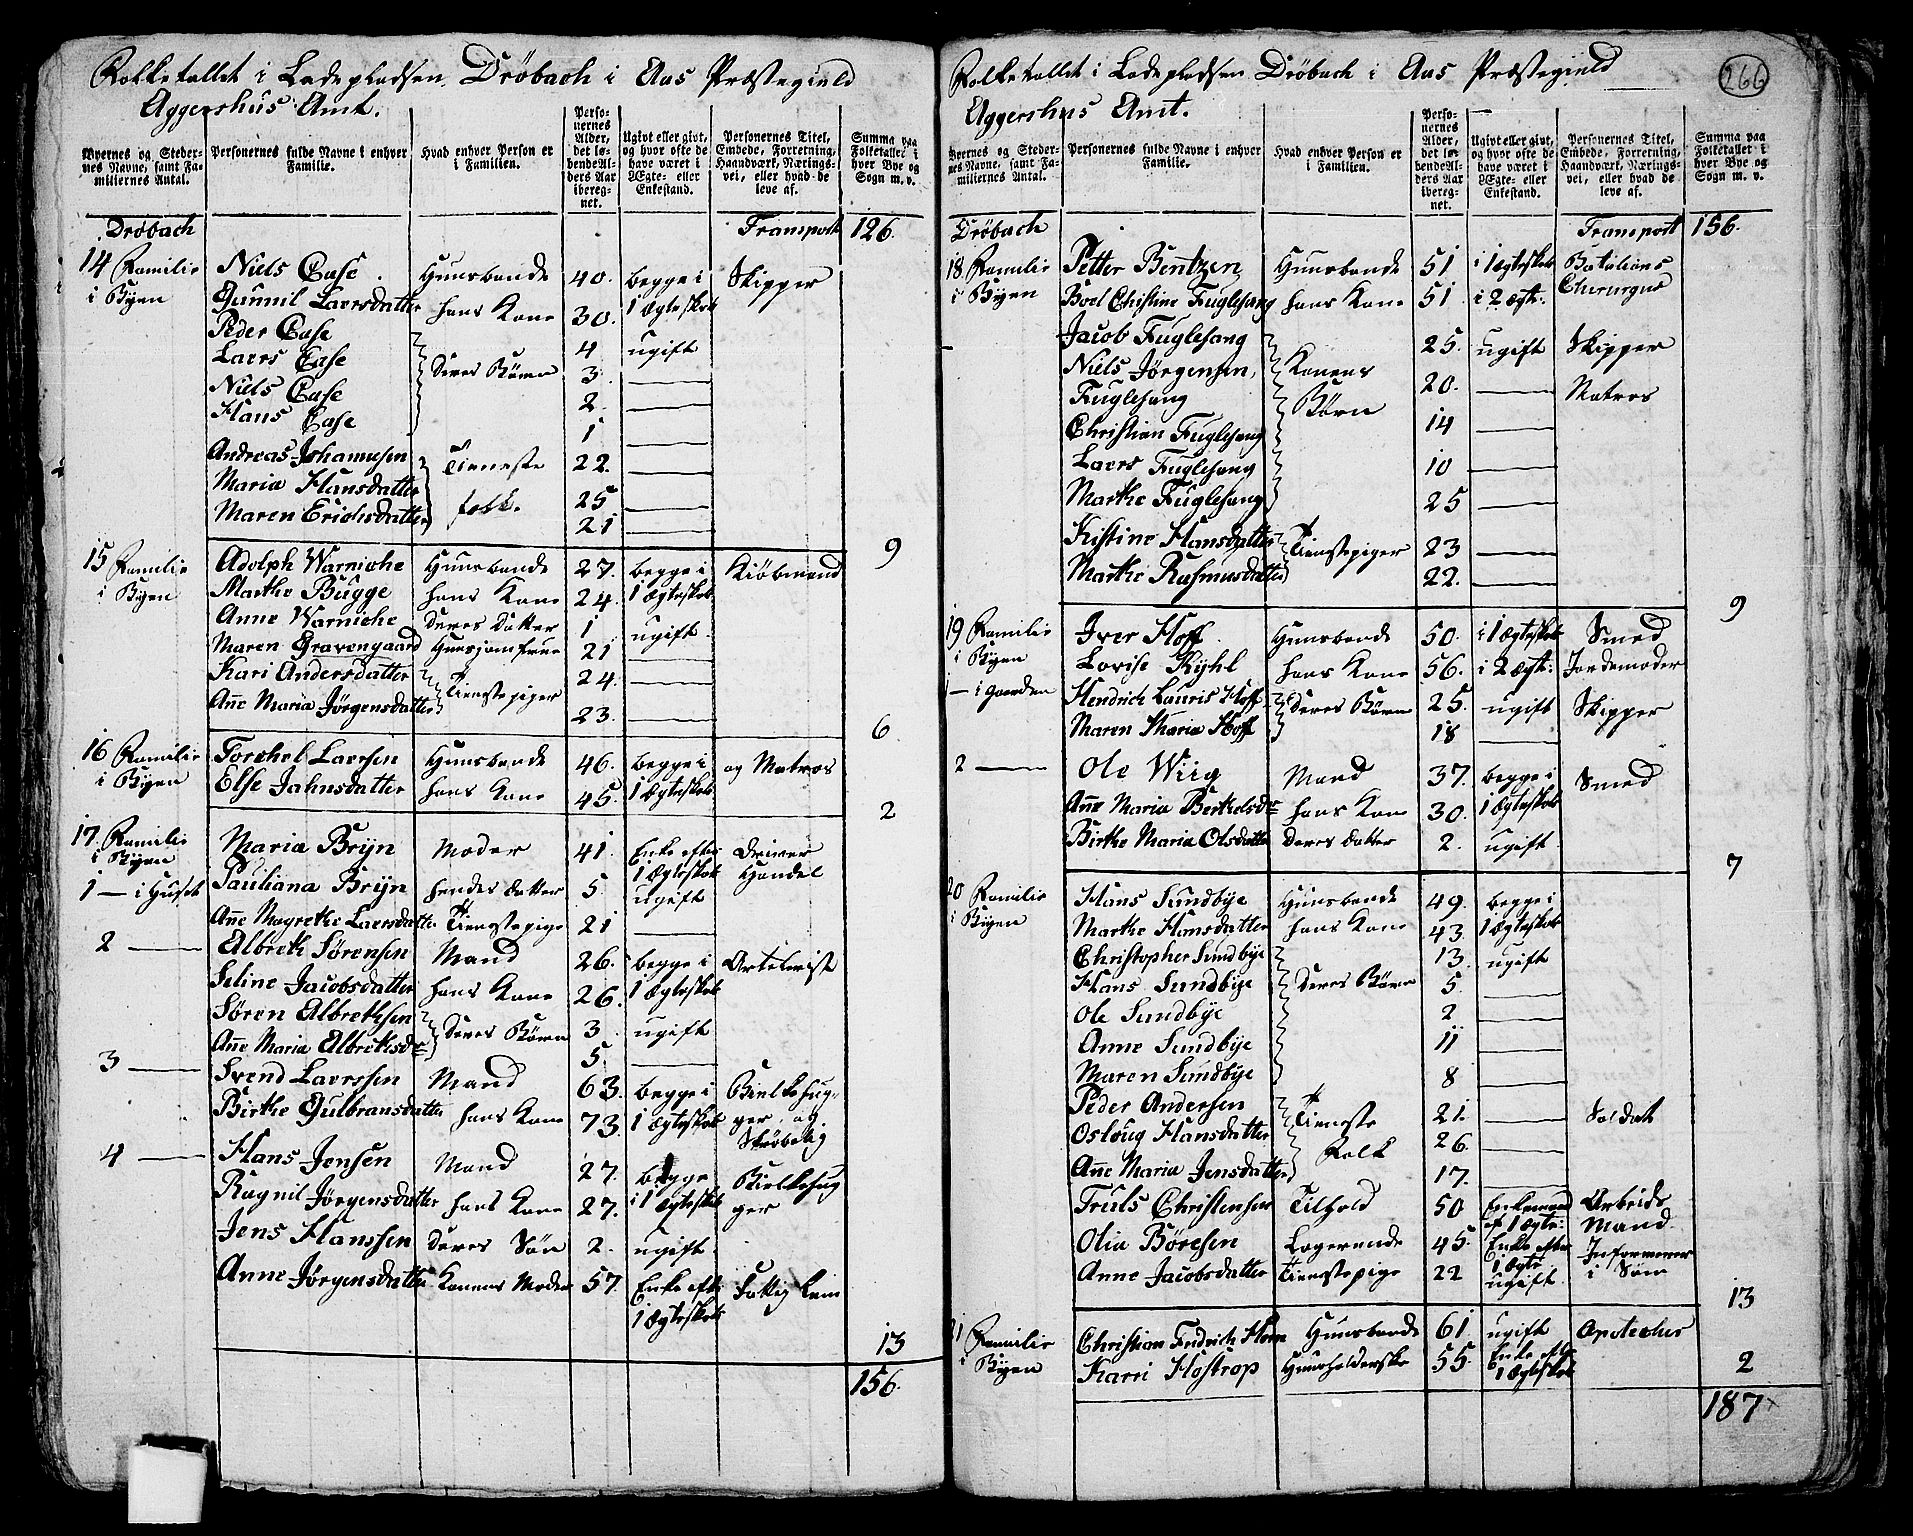 Folketallet i Ladepladsen Drøbach i Aas Præstegield
Aggershus Amt.
Byernes og Stedernes Navne, samt Familiernes Antal.
Personernes fulde Navne i enhver Familie.
Hvad enhver Person er i Familien.
Personernes Alder, det løbende Alders Aar iberegnet.
Ugivt eller givt, og hvor ofte de have været i Ægte- eller Enkestand.
Personernes Titel, Embede, Forretning, Haandværk, Næringsvei, eller hvad de leve af.
Summa paa Folketallet i hver Bye og Sogn m. v.
Drøbach Transport 126.
14 Familie i Byen Niels Case Huusbonde 40. begge i 1 ægteskab Skipper
Gunnil Laersdatter hans Kone 30.
Peder Case deres Børn 4 ugift
Laers Case 3. —
Niels Case 2. —
Hans Case 1 —
Andreas Johannesen Tieneste folk. 22. —
Maria Hansdatter 25 —
Maren Erichsdatter 21 —
9
15 Familie i Byen Adolph Warniche Huusbonde 27. begge i 1 ægteskab Kiöbmand
Marthe Bugge hans Kone 24.
Anne Warniche deres datter 1 ugift
Maren Gravengaard Huusjomfrue 21 —
Kari Andersdatter Tienestepiger 24. —
Añe Maria Jørgensdatter 23. —
6
16 Familie i Byen Torchel Laersen Huusbonde 46. begge i 1 ægteskab og Matros
Else Jahnsdatter hans Kone 45.
2
17 Familie i Byen
1 — i Huset Maria Bryn Moder 41. Enke efter 1 ægteskab Driver Handel
Pauliana Bryn hendes datter 5. ugift
Añe Magrethe Laersdatter Tienestepige 21 —
2 — Albreth Sørensen Mand 26. begge i 1 ægteskab Artelerist
Seline Jacobsdatter hans Kone 26.
Søren Albrethsen deres Børn 3. ugift
Añe Maria Albrethsdr 5. —
3 — Svend Laerssen Mand 63. begge i 1 ægteskab Bielkehugger, og Skrøbelig
Birthe Gulbransdatter hans Kone 73.
4 — Hans Jensen Mand 27. begge i 1 ægteskab Bielkehugger
Ragnil Jørgensdatter hans Kone 27.
Jens Hanssen deres Søn 2. ugift.
Anne Jørgensdatter Konens Moder 57. Enke efter 1 ægteskab Fattig lem
13
156.
266
Folketallet i Ladepladsen Drøbach i Aas Præstegield
Aggershus Amt.
Byernes og Stedernes Navne, samt Familiernes Antal.
Personernes fulde Navne i enhver Familie.
Hvad enhver Person er i Familien.
Personernes Alder, det løbende Alders Aar iberegnet.
Ugivt eller givt, og hvor ofte de have været i Ægte- eller Enkestand.
Personernes Titel, Embede, Forretning, Haandværk, Næringsvei, eller hvad de leve af.
Summa paa Folketallet i hver Bye og Sogn m. v.
Drøbach Transport 156.
18 Familie i Byen Petter Bentzen Huusbonde 51 i 1 ægteskab Batalions Chirurgus
Boel Christine Fuglesang hans Kone 51. i 2 ægt:
Jacob Fuglesang Konens Børn 25. ugift Skipper
Niels Jørgensen Fuglesang 20. — Matros
Christian Fuglesang 14 —
Laers Fuglesang 10 —
Marthe Fuglesang 25 —
Kistine Hansdatter Tienestepiger 23 —
Marthe Rasmusdatter 22. —
9
19 Familie i Byen
1 — i gaarden Iver Hoff Huusbonde 50. i 1 ægteskab Smed
Lovise Kyhl hans Kone 56. i 2 ægt: Jordemoder
Hendrich Lauris Hoff deres Børn 25. ugift Skipper
Maren Maria Hoff 18 —
2 — Ole Wiig Mand 37. begge i 1 ægteskab Smed
Añe Maria Berthelsdr hans Kone 30.
Birthe Maria Olsdatter deres datter 2. ugift.
7
20 Familie i Byen Hans Sundbye Huusbonde 49. begge i 1 ægteskab
Marthe Hansdatter hans Kone 43.
Christopher Sundbye deres Børn 13. ugift
Hans Sundbye 5. —
Ole Sundbye 2 —
Anne Sundbye 11 —
Maren Sundbye 8 —
Peder Andersen Tieneste Folk 21. — Soldat
Osloug Hansdatter 26. —
Añe Maria Jensdatter 17. —
Truls Christensen Tilhold 50 Enkemand af 1 ægte: Arbeids Mand.
Olia Børesen Logerende 45. Enke efter 1 ægte Informerer i Søm
Anne Jacobsdatter Tienestepige 22 ugift
13
21 Familie i Byen Christian Fridrich Horn Huusbonde 61 ugift Apotecher
Karri Hostrop Huusholderske 55. Enke efter 1 ægteskab
2
187